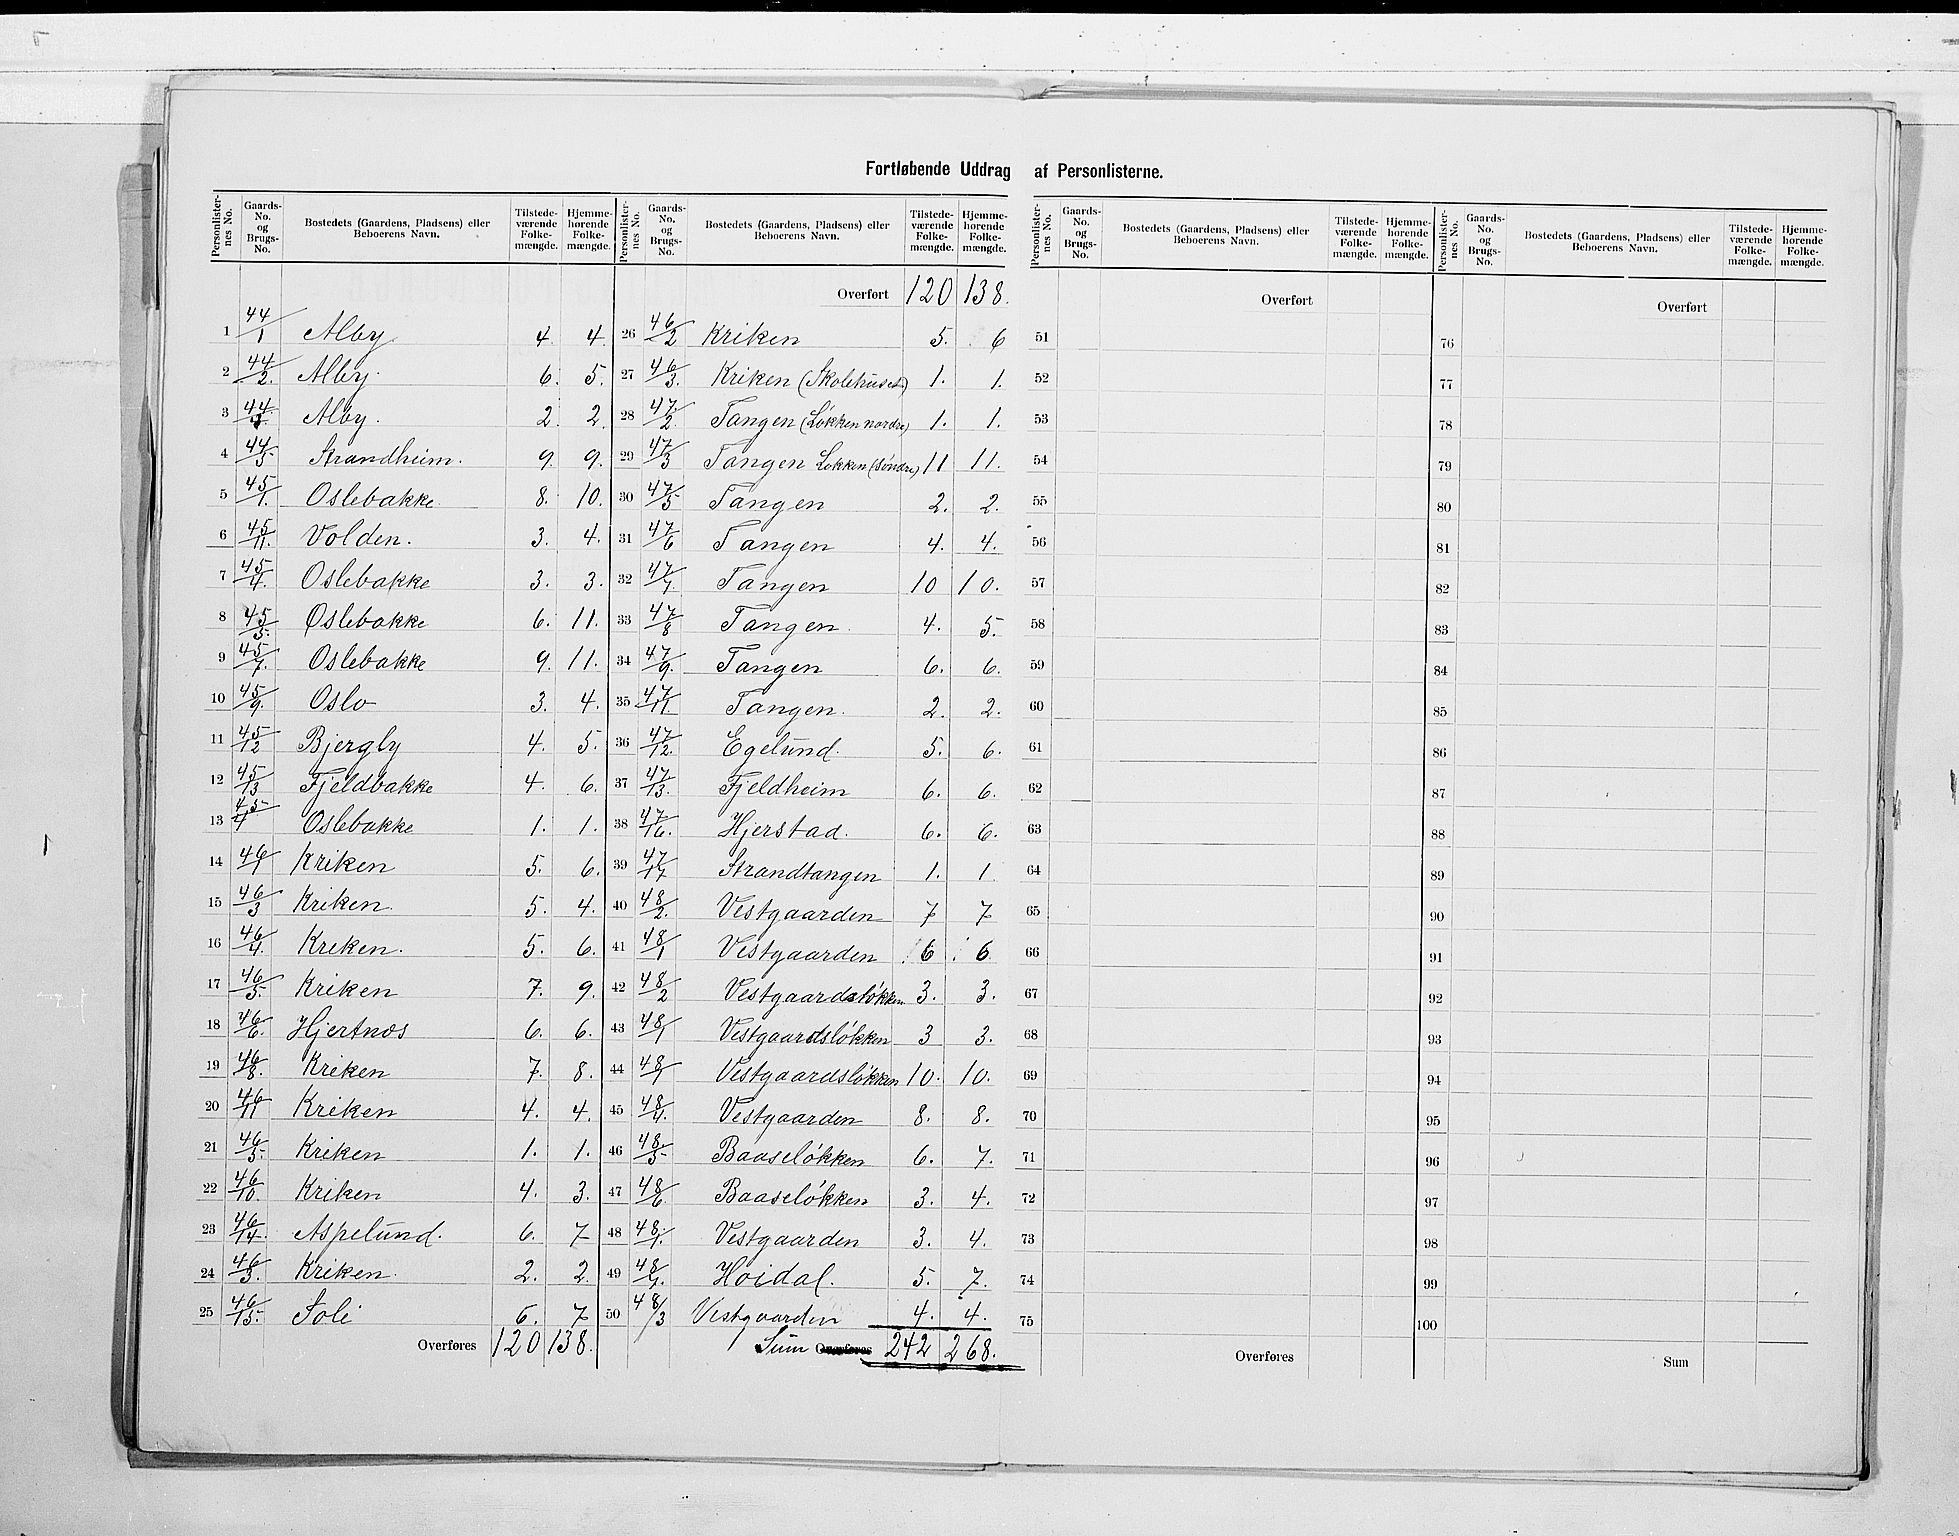 Fortløbende Uddrag af Personlisterne.
Personlister-nes No. | Gaards-No. og Brugs-No. | Bostedets (Gaardens, Pladsens) eller Beboerens Navn. | Tilstede-værende Folke-mængde. | Hjemme-hørende Folke-mængde.
1 44/1 Alby 4. 4.
2 44/2. Alby. 6. 5.
3 44. Alby. 2. 2.
4 44/5 Strandheim. 9. 9.
5 45/1. Oslebakke. 8. 10.
6 45/11. Volden. 3. 4.
7 45/4. Oslebakke 3. 3.
8 45/5. Oslebakke 6. 11.
9 45/7. Oslebakke 9. 11.
10 45/9. Oslo 3. 4.
11 45/12 Bjergly 4. 5.
12 45/13 Fjeldbakke 4. 6.
13 45/1 Oslebakke 1. 1.
14 46/1 Kriken 5. 6.
15 46/3 Kriken. 5. 4.
16 46/4. Kreken. 5. 6.
17 46/5. Kriken 7. 9.
18 46/6. Hjertnos 6. 6.
19 46/8. Kriken 7. 8.
20 46/11 Kriken 4. 4.
21 46/5. Kriken 1. 1.
22 46/10. Kriken 4. 3.
23 46/14. Aspelund. 6. 7
24 46/3. Kriken. 2. 2.
25 46/15. Soli 6. 7
Overføres 120 138.
Personlister-nes No. | Gaards-No. og Brugs-No. | Bostedets (Gaardens, Pladsens) eller Beboerens Navn. | Tilstede-værende Folke-mængde. | Hjemme-hørende Folke-mængde.
Overført 120 138.
26 46/2 Kriken 5. 6
27 46/3. Kriken (Skolehuset) 1. 1.
28 47/2. Tangen (Løkken nordre) 1. 1.
29 47/3 Tangen Løkken (søndre) 11 11.
30 47/5 Tangen 2. 2.
31 47/6 Tangen 4. 4.
32 47/7. Tangen 10 10.
33 47/8 Tangen. 4. 5.
34 47/9. Tangen 6. 6.
35 47/11. Tangen. 2. 2.
36 47/12. Egelund. 5. 6.
37 47/13. Fjeldheim 6. 6.
38 47/16. Hjerstad. 6. 6.
39 47/17 Strandtangen 1. 1
40 48/2. Vestgaarden 7 7
41 48/1 Vestgaarden 6 6
42 48/2 Vestgaardsløkken 3. 3.
43 48/1 Vestgaardsløkken 3 3.
44 48/1 Vestgaardsløkken 10. 10.
45 48/4. Vestgaarden 8. 8.
46 48/5 Baaseløkken 6. 7.
47 48/6. Baaseløkken 3. 4.
48 48/1. Vestgaarden 3. 4.
49 48/4. Høidal. 5. 7.
50 48/3 Vestgaarden 4. 4.
Sum Overføres 242 268.
Personlister-nes No. | Gaards-No. og Brugs-No. | Bostedets (Gaardens, Pladsens) eller Beboerens Navn. | Tilstede-værende Folke-mængde. | Hjemme-hørende Folke-mængde.
Overført
51
52
53
54
55
56
57
58
59
60
61
62
63
64
65
66
67
68
69
70
71
72
73
74
75
Overføres
Personlister-nes No. | Gaards-No. og Brugs-No. | Bostedets (Gaardens, Pladsens) eller Beboerens Navn. | Tilstede-værende Folke-mængde. | Hjemme-hørende Folke-mængde.
Overført
76
77
78
79
80
81
82
83
84
85
86
87
88
89
90
91
92
93
94
95
96
97
98
99
100
Sum